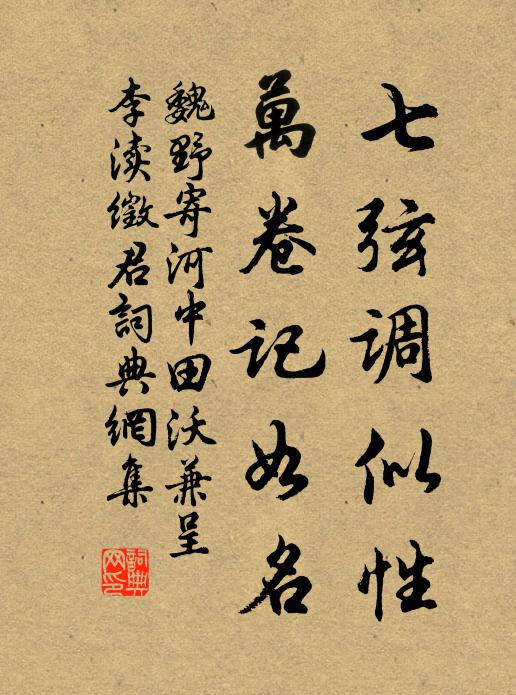 七弦調似性
萬卷記如名
魏野寄河中田沃兼呈
李渎徵君詞典網集
詞典网印